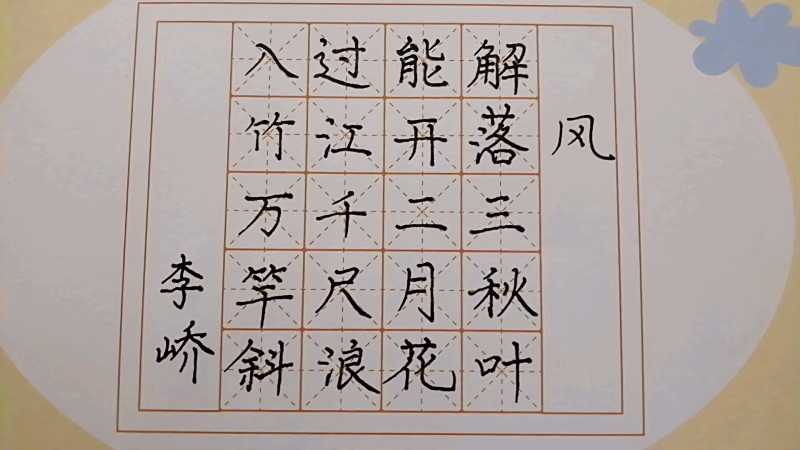 风
解落三秋叶
能开二月花
过江千尺浪
入竹万竿斜
李峤